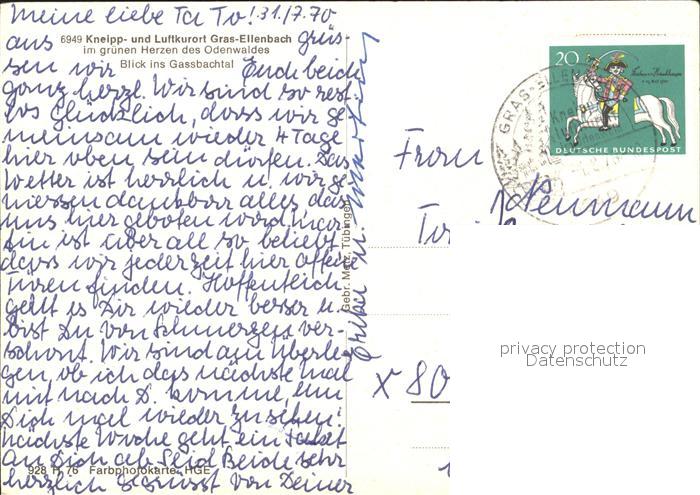 Meine liebe Ta To! 31./7.70
6949 Kneipp- und Luftkurort Gras-Ellenbach
im grünen Herzen des Odenwaldes
Blick ins Gassbachtal
aus grüs-
sen wir Euch beide
ganz herzl. Wir sind so rest-
los glücklich, dass wir ge-
meinsam wieder 4 Tage
hier oben sein dürfen. Das
Wetter ist herrlich u. wir ge-
niessen dankbar alles das
uns hier geboten wird.
ist überall so beliebt
dass wir jederzeit hier offene
Türen finden. Hoffentlich
geht es Dir wieder besser u.
bist Du von Schmerzen ver-
schont. Wir sind am Überle-
gen, ob ich das nächste mal
mit nach D. komme, um
Dich mal wieder zu sehen.
Nächste Woche geht ein Paket
an Dich ab. Seid Beide sehr
herzlich gegrüsst von Deiner
928 H 76 Farbphotokarte: HGE
Gebr. Metz, Tübingen
20
DEUTSCHE BUNDESPOST
GRAS-ELLEN
Frau
Neumann
X 80
privacy protection
Datenschutz